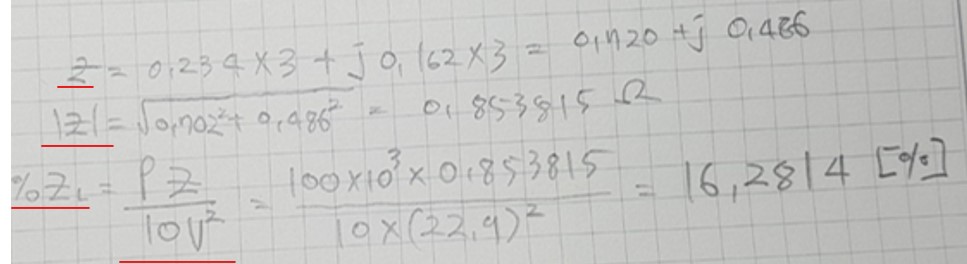 Z = 0,234 × 3 + j 0,162 × 3 = 0,720 + j 0,486
|Z| = √0,702² + 0,486² = 0,853815 Ω
%Z₁ = PZ / 10V² = 100×10³ × 0,853815 / 10 × (22,9)² = 16,2814 [%]